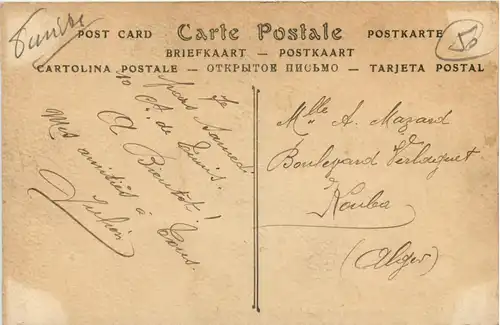 Tunisie
50
POST CARD Carte Postale POSTKARTE
BRIEFKAART — POSTKAART
CARTOLINA POSTALE — ОТКРЫТОЕ ПИСЬМО — TARJETA POSTAL
Je pars Samedi
10 A. de Tunis.
A Bientôt !
Mes amitiés à
Tous.
Mlle A. Mazard
Boulevard Verlaguet
Kouba
(Alger)